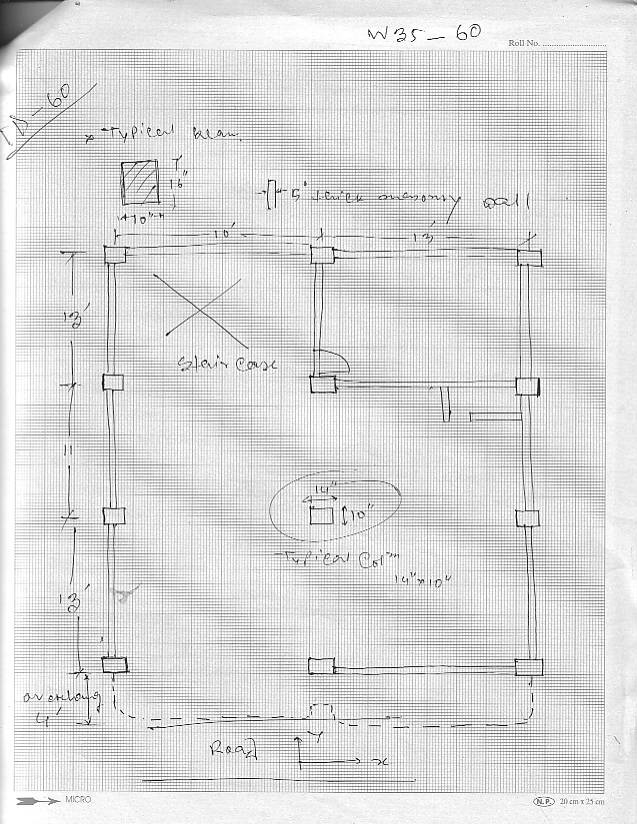 W35-60
Roll No.
ID-60
* Typical beam
16"
10"
5" thick masonry wall
10'
13'
13'
Stair Case
11
14"
10"
Typical Colmn
14"x10"
13'
overhang
4'
Road
Y
x
MICRO
N.P. 20 cm x 25 cm